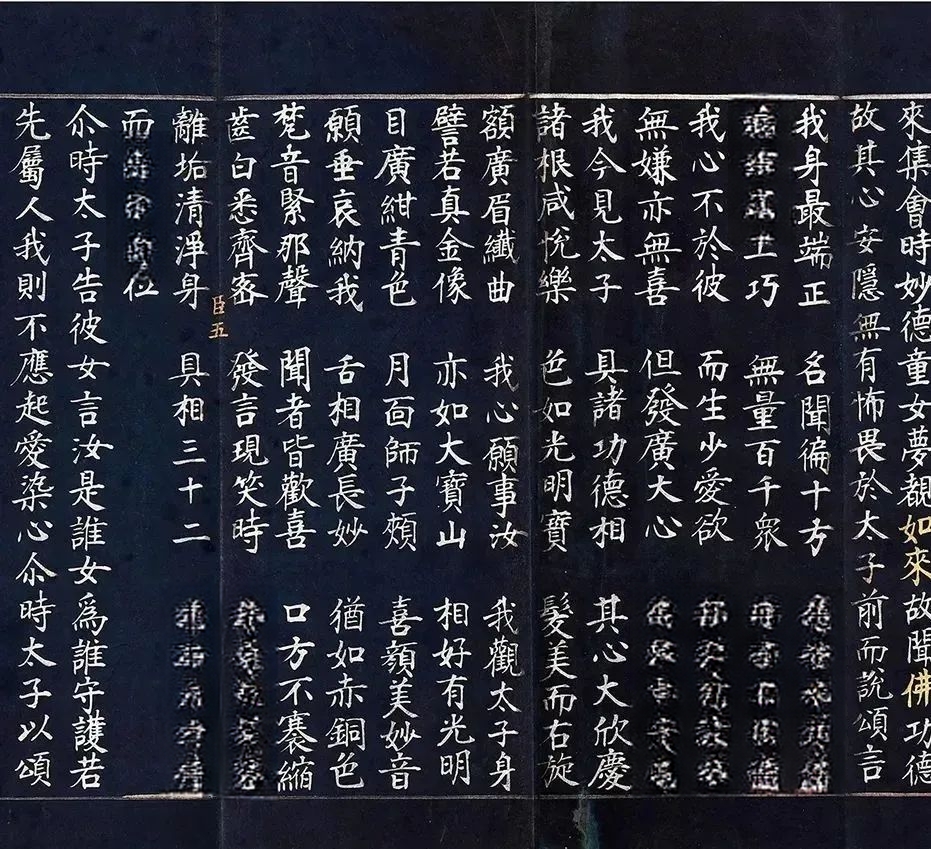 來集會時妙德童女夢覩如來故聞佛功德
故其心安隱無有怖畏於太子前而說頌言
我身最端正 名聞徧十方
工巧 無量百千衆
我心不於彼 而生少愛欲
無嫌亦無喜 但發廣大心
我今見太子 具諸功德相 其心大欣慶
諸根咸悅樂 色如光明寶 髮美而右旋
額廣眉纖曲 我心願事汝 我觀太子身
譬若真金像 亦如大寶山 相好有光明
目廣紺青色 月面師子頰 喜顏美妙音
願垂哀納我 舌相廣長妙 猶如赤銅色
梵音緊那聲 聞者皆歡喜 口方不褰縮
齒白悉齊密 發言現笑時
臣五
離垢清淨身 具相三十二
而 位
尒時太子告彼女言汝是誰女爲誰守護若
先屬人我則不應起愛染心尒時太子以頌